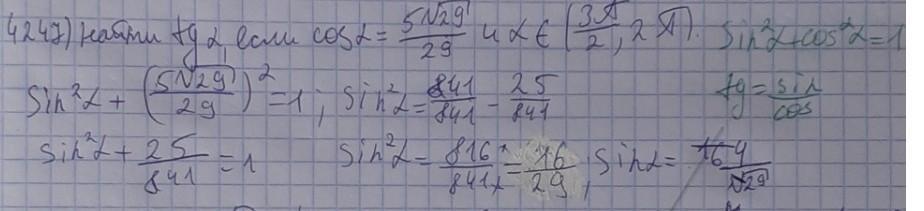 4247) Найти tg α, если cos α = 5√29/29 и α ∈ (3π/2, 2π). sin²α + cos²α = 1
sin²α + (5√29/29)² = 1; sin²α = 841/841 - 25/841 tg = sin/cos
sin²α + 25/841 = 1 sin²α = 816/841 = 16/29; sin α = 4/√29